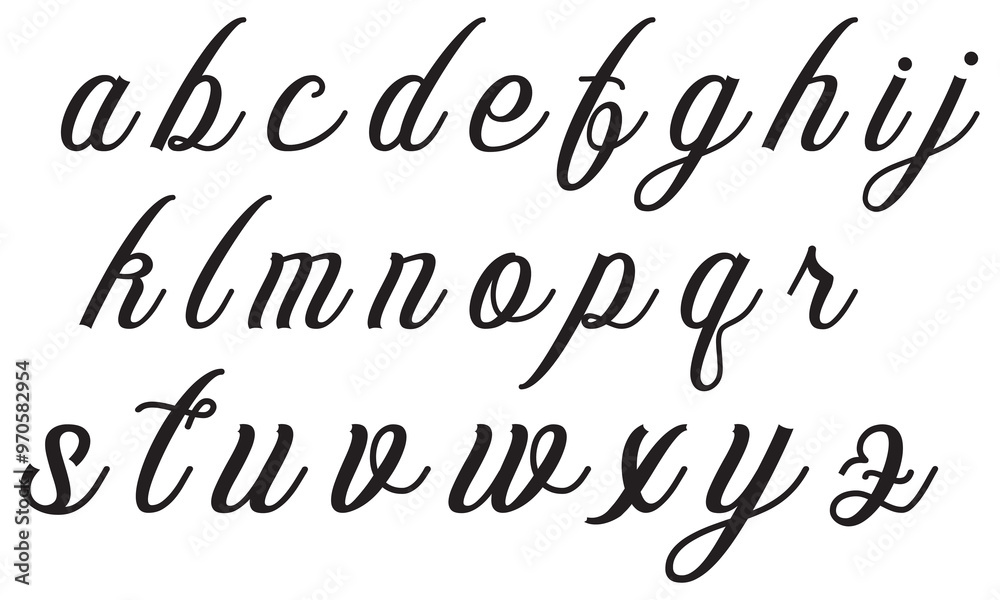 a b c d e f g h i j
k l m n o p q r
s t u v w x y z
Adobe Stock | #970582954